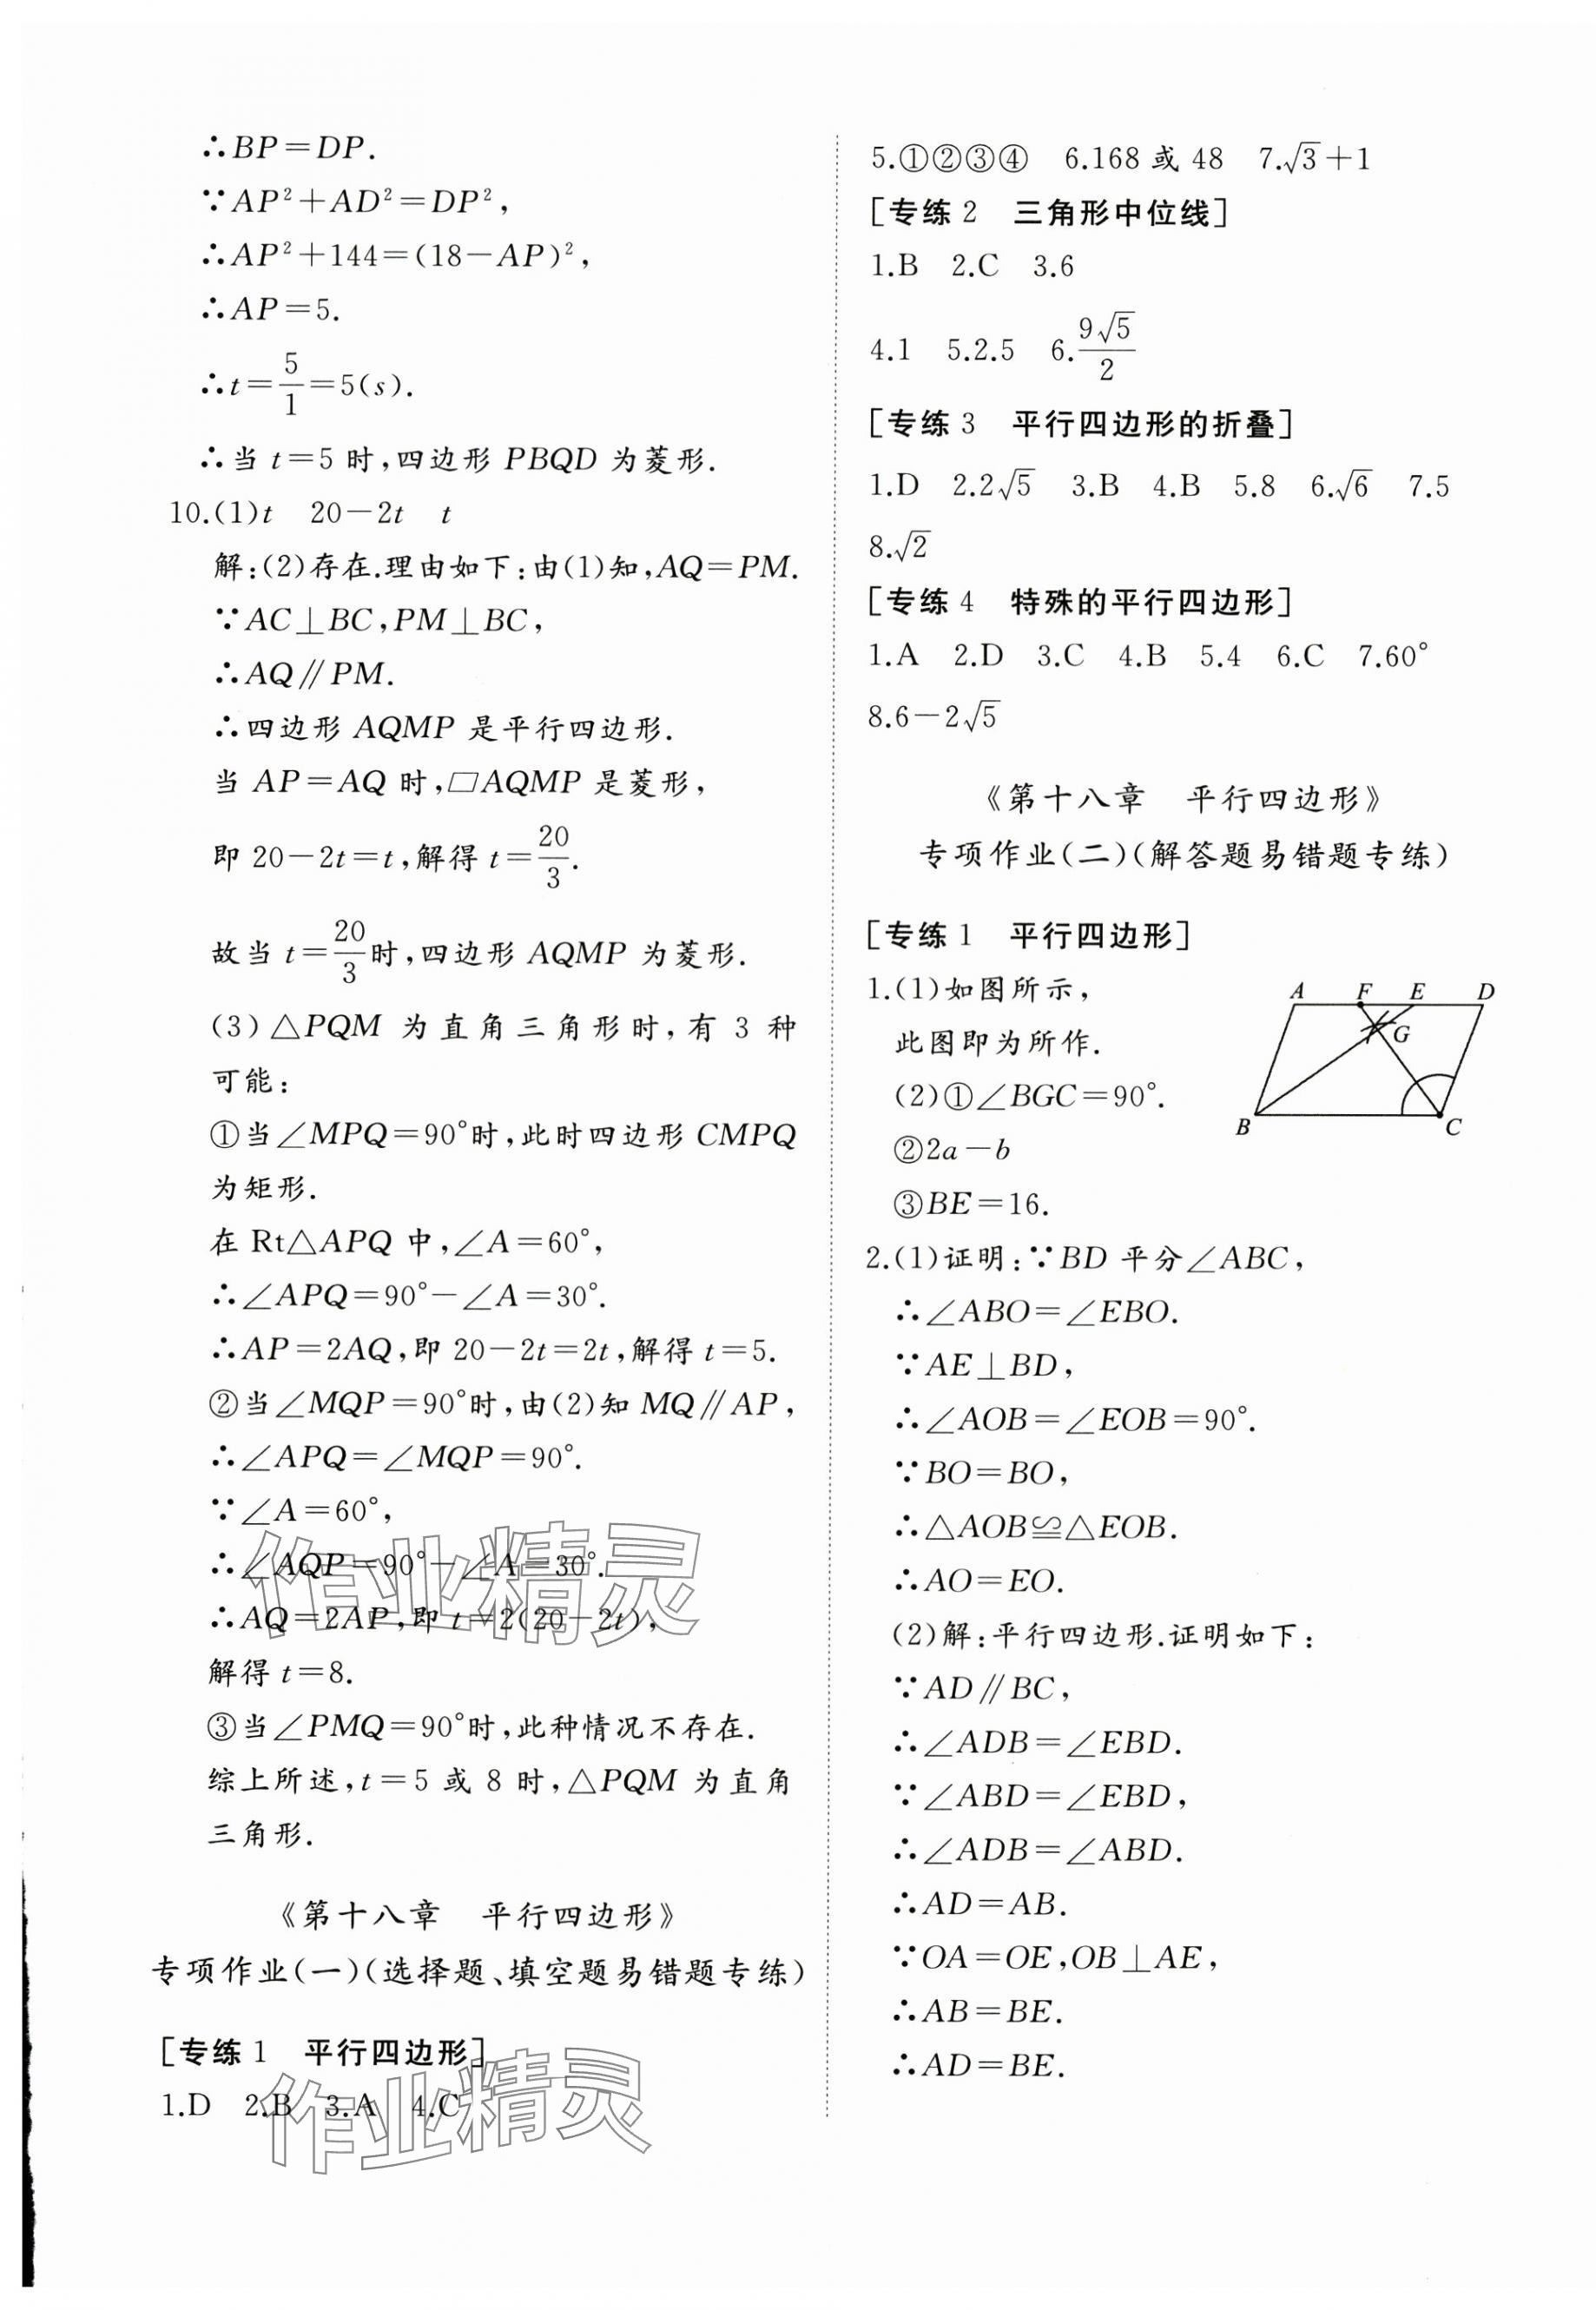 ∴BP=DP.
∵AP²+AD²=DP²,
∴AP²+144=(18-AP)²,
∴AP=5.
∴t=5/1=5(s).
∴当 t=5 时,四边形 PBQD 为菱形.
10.(1)t 20-2t t
解:(2)存在.理由如下:由(1)知,AQ=PM.
∵AC⊥BC,PM⊥BC,
∴AQ∥PM.
∴四边形 AQMP 是平行四边形.
当 AP=AQ 时,▱AQMP 是菱形,
即 20-2t=t,解得 t=20/3.
故当 t=20/3时,四边形 AQMP 为菱形.
(3)△PQM 为直角三角形时,有 3 种
可能:
①当∠MPQ=90°时,此时四边形 CMPQ
为矩形.
在 Rt△APQ 中,∠A=60°,
∴∠APQ=90°-∠A=30°.
∴AP=2AQ,即 20-2t=2t,解得 t=5.
②当∠MQP=90°时,由(2)知 MQ∥AP,
∴∠APQ=∠MQP=90°.
∵∠A=60°,
∴∠AQP=90°-∠A=30°.
∴AQ=2AP,即 t=2(20-2t),
解得 t=8.
③当∠PMQ=90°时,此种情况不存在.
综上所述,t=5 或 8 时,△PQM 为直角
三角形.
《第十八章 平行四边形》
专项作业(一)(选择题、填空题易错题专练)
[专练1 平行四边形]
1.D 2.B 3.A 4.C
5.①②③④ 6.168 或 48 7.√3+1
[专练2 三角形中位线]
1.B 2.C 3.6
4.1 5.2.5 6.9√5/2
[专练3 平行四边形的折叠]
1.D 2.2√5 3.B 4.B 5.8 6.√6 7.5
8.√2
[专练4 特殊的平行四边形]
1.A 2.D 3.C 4.B 5.4 6.C 7.60°
8.6-2√5
《第十八章 平行四边形》
专项作业(二)(解答题易错题专练)
[专练1 平行四边形]
1.(1)如图所示,
此图即为所作.
(2)①∠BGC=90°.
②2a-b
③BE=16.
A F E D
G
B C
2.(1)证明:∵BD 平分∠ABC,
∴∠ABO=∠EBO.
∵AE⊥BD,
∴∠AOB=∠EOB=90°.
∵BO=BO,
∴△AOB≌△EOB.
∴AO=EO.
(2)解:平行四边形.证明如下:
∵AD∥BC,
∴∠ADB=∠EBD.
∵∠ABD=∠EBD,
∴∠ADB=∠ABD.
∴AD=AB.
∵OA=OE,OB⊥AE,
∴AB=BE.
∴AD=BE.
作业精灵
作业精灵